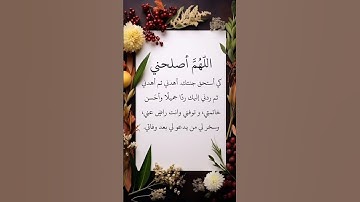 اللّهُمَّ أصلحني
كي أستحق جنتك، أهدني ثم أهدني
ثم ردني إليك ردًا جميلًا وأحسن
خاتمتي، و توفني وانت راضٍ عني،
وسخر لي من يدعو لي بعد وفاتي.